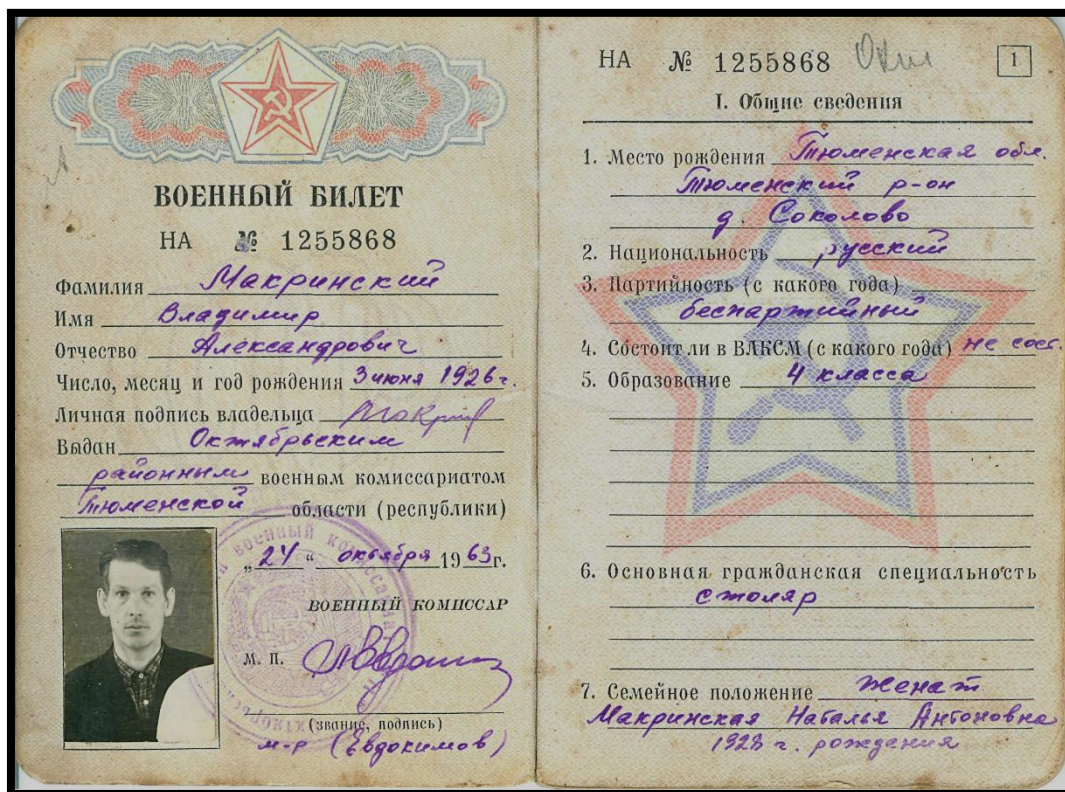 ВОЕННЫЙ БИЛЕТ
НА № 1255868
Фамилия Макринский
Имя Владимир
Отчество Александрович
Число, месяц и год рождения 3 июня 1926 г.
Личная подпись владельца
Выдан Октябрьским
районным военным комиссариатом
Тюменской области (республики)
„24“ октября 1963 г.
ВОЕННЫЙ КОМИССАР
М. П.
(звание, подпись)
м-р (Евдокимов)
НА № 1255868
1
I. Общие сведения
1. Место рождения Тюменская обл.
Тюменский р-он
д. Соколово
2. Национальность русский
3. Партийность (с какого года)
беспартийный
4. Состоит ли в ВЛКСМ (с какого года) не сост.
5. Образование 4 класса
6. Основная гражданская специальность
столяр
7. Семейное положение женат
Макринская Наталья Антоновна
1928 г. рождения